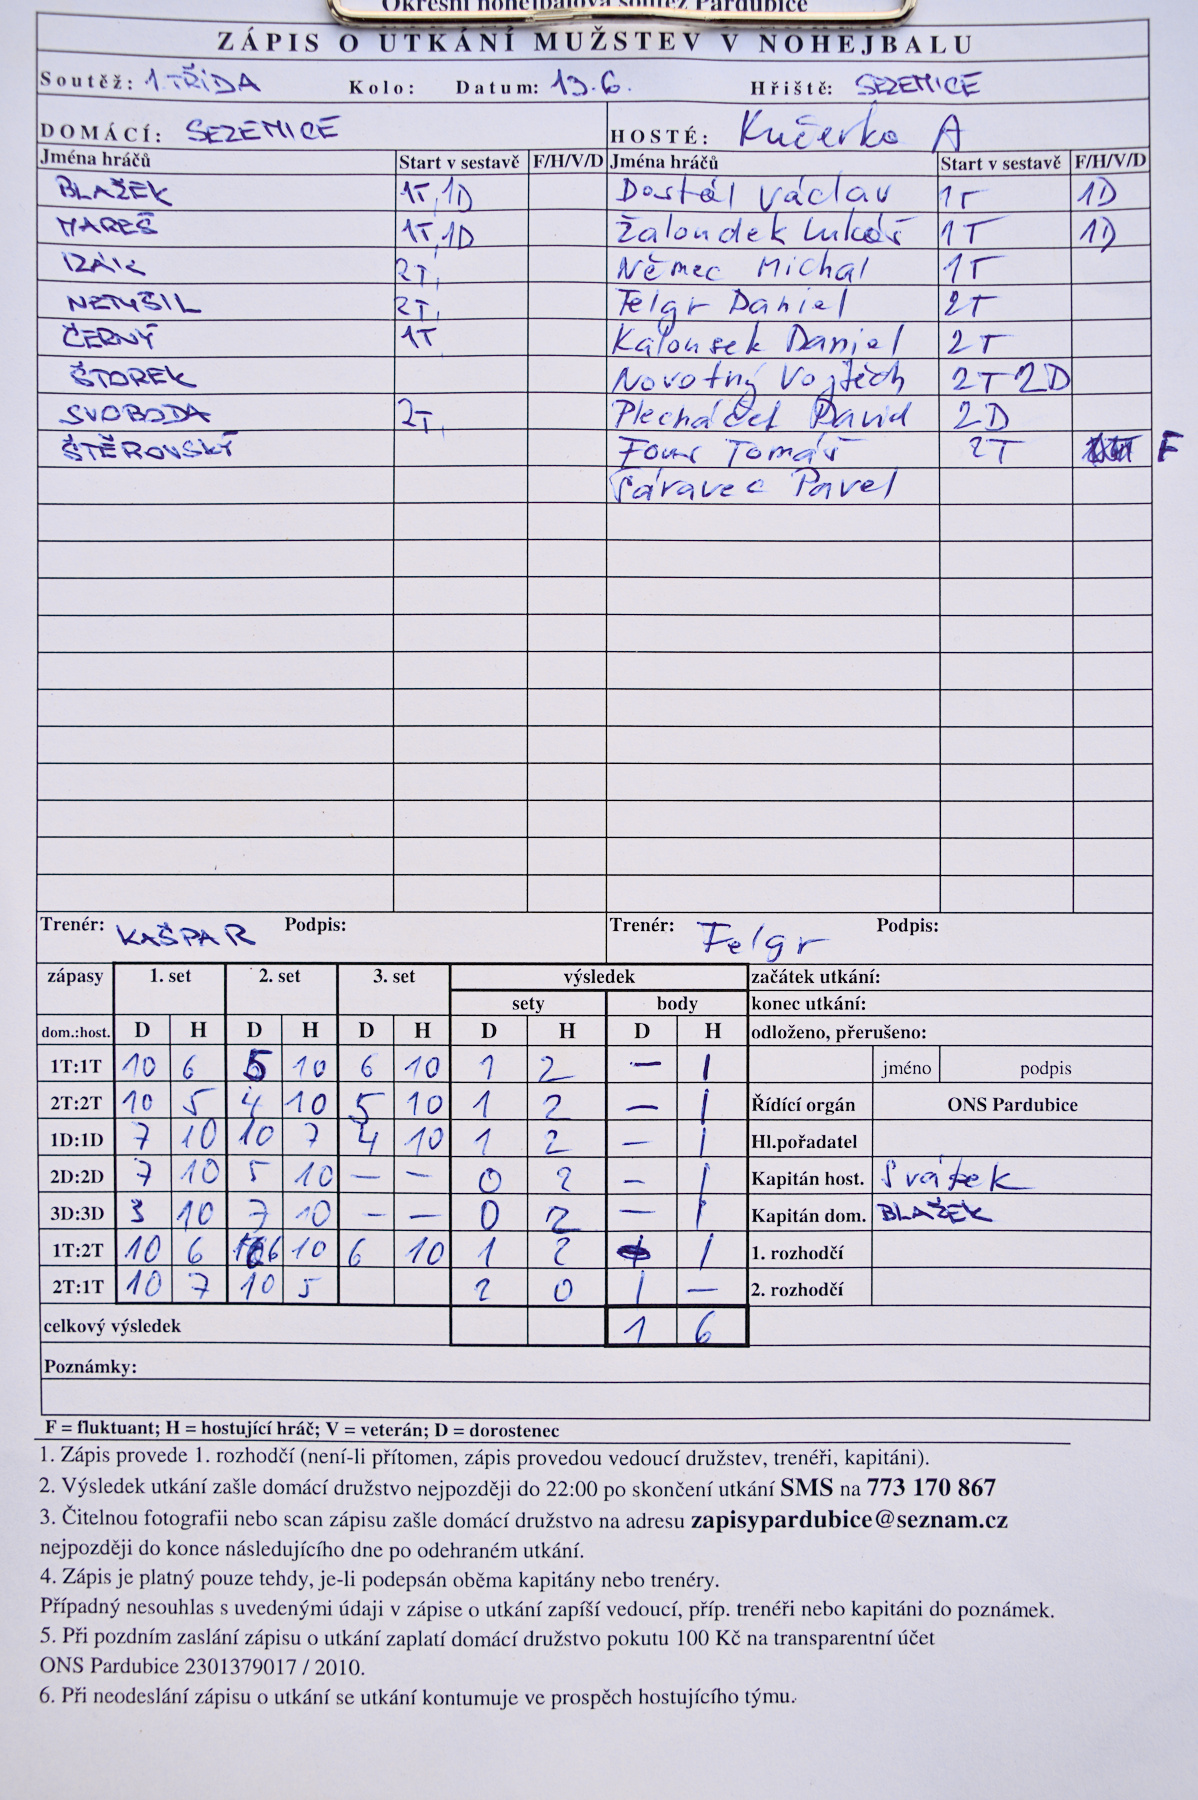 Okresní nohejbalová soutěž Pardubice
ZÁPIS O UTKÁNÍ MUŽSTEV V NOHEJBALU
Soutěž: 1. TŘÍDA Kolo: Datum: 13.6. Hřiště: SEZEMICE
DOMÁCÍ: SEZEMICE HOSTÉ: Kučerko A
Jména hráčů Start v sestavě F/H/V/D Jména hráčů Start v sestavě F/H/V/D
BLAŽEK 1T, 1D Dostál Václav 1T 1D
MAREŠ 1T, 1D Žaloudek Lukáš 1T 1D
IZÁK 2T, Němec Michal 1T
NETUŠIL 2T, Felgr Daniel 2T
ČERNÝ 1T Kalousek Daniel 2T
ŠTOREK Novotný Vojtěch 2T 2D
SVOBODA 2T, Plecháček David 2D
ŠTĚROVSKÝ Tomáš 2T F
Pavel
Trenér: KAŠPAR Podpis: Trenér: Felgr Podpis:
zápasy 1. set 2. set 3. set výsledek začátek utkání:
sety body konec utkání:
dom.:host. D H D H D H D H D H odloženo, přerušeno:
1T:1T 10 6 5 10 6 10 1 2 – 1 jméno podpis
2T:2T 10 5 4 10 5 10 1 2 – 1 Řídící orgán ONS Pardubice
1D:1D 7 10 10 7 4 10 1 2 – 1 Hl.pořadatel
2D:2D 7 10 5 10 – – 0 2 – 1 Kapitán host. Svátek
3D:3D 3 10 7 10 – – 0 2 – 1 Kapitán dom. BLAŽEK
1T:2T 10 6 6 10 6 10 1 2 1 1. rozhodčí
2T:1T 10 7 10 5 2 0 1 – 2. rozhodčí
celkový výsledek 1 6
Poznámky:
F = fluktuant; H = hostující hráč; V = veterán; D = dorostenec
1. Zápis provede 1. rozhodčí (není-li přítomen, zápis provedou vedoucí družstev, trenéři, kapitáni).
2. Výsledek utkání zašle domácí družstvo nejpozději do 22:00 po skončení utkání SMS na 773 170 867
3. Čitelnou fotografii nebo scan zápisu zašle domácí družstvo na adresu zapisypardubice@seznam.cz
nejpozději do konce následujícího dne po odehraném utkání.
4. Zápis je platný pouze tehdy, je-li podepsán oběma kapitány nebo trenéry.
Případný nesouhlas s uvedenými údaji v zápise o utkání zapíší vedoucí, příp. trenéři nebo kapitáni do poznámek.
5. Při pozdním zaslání zápisu o utkání zaplatí domácí družstvo pokutu 100 Kč na transparentní účet
ONS Pardubice 2301379017 / 2010.
6. Při neodeslání zápisu o utkání se utkání kontumuje ve prospěch hostujícího týmu.